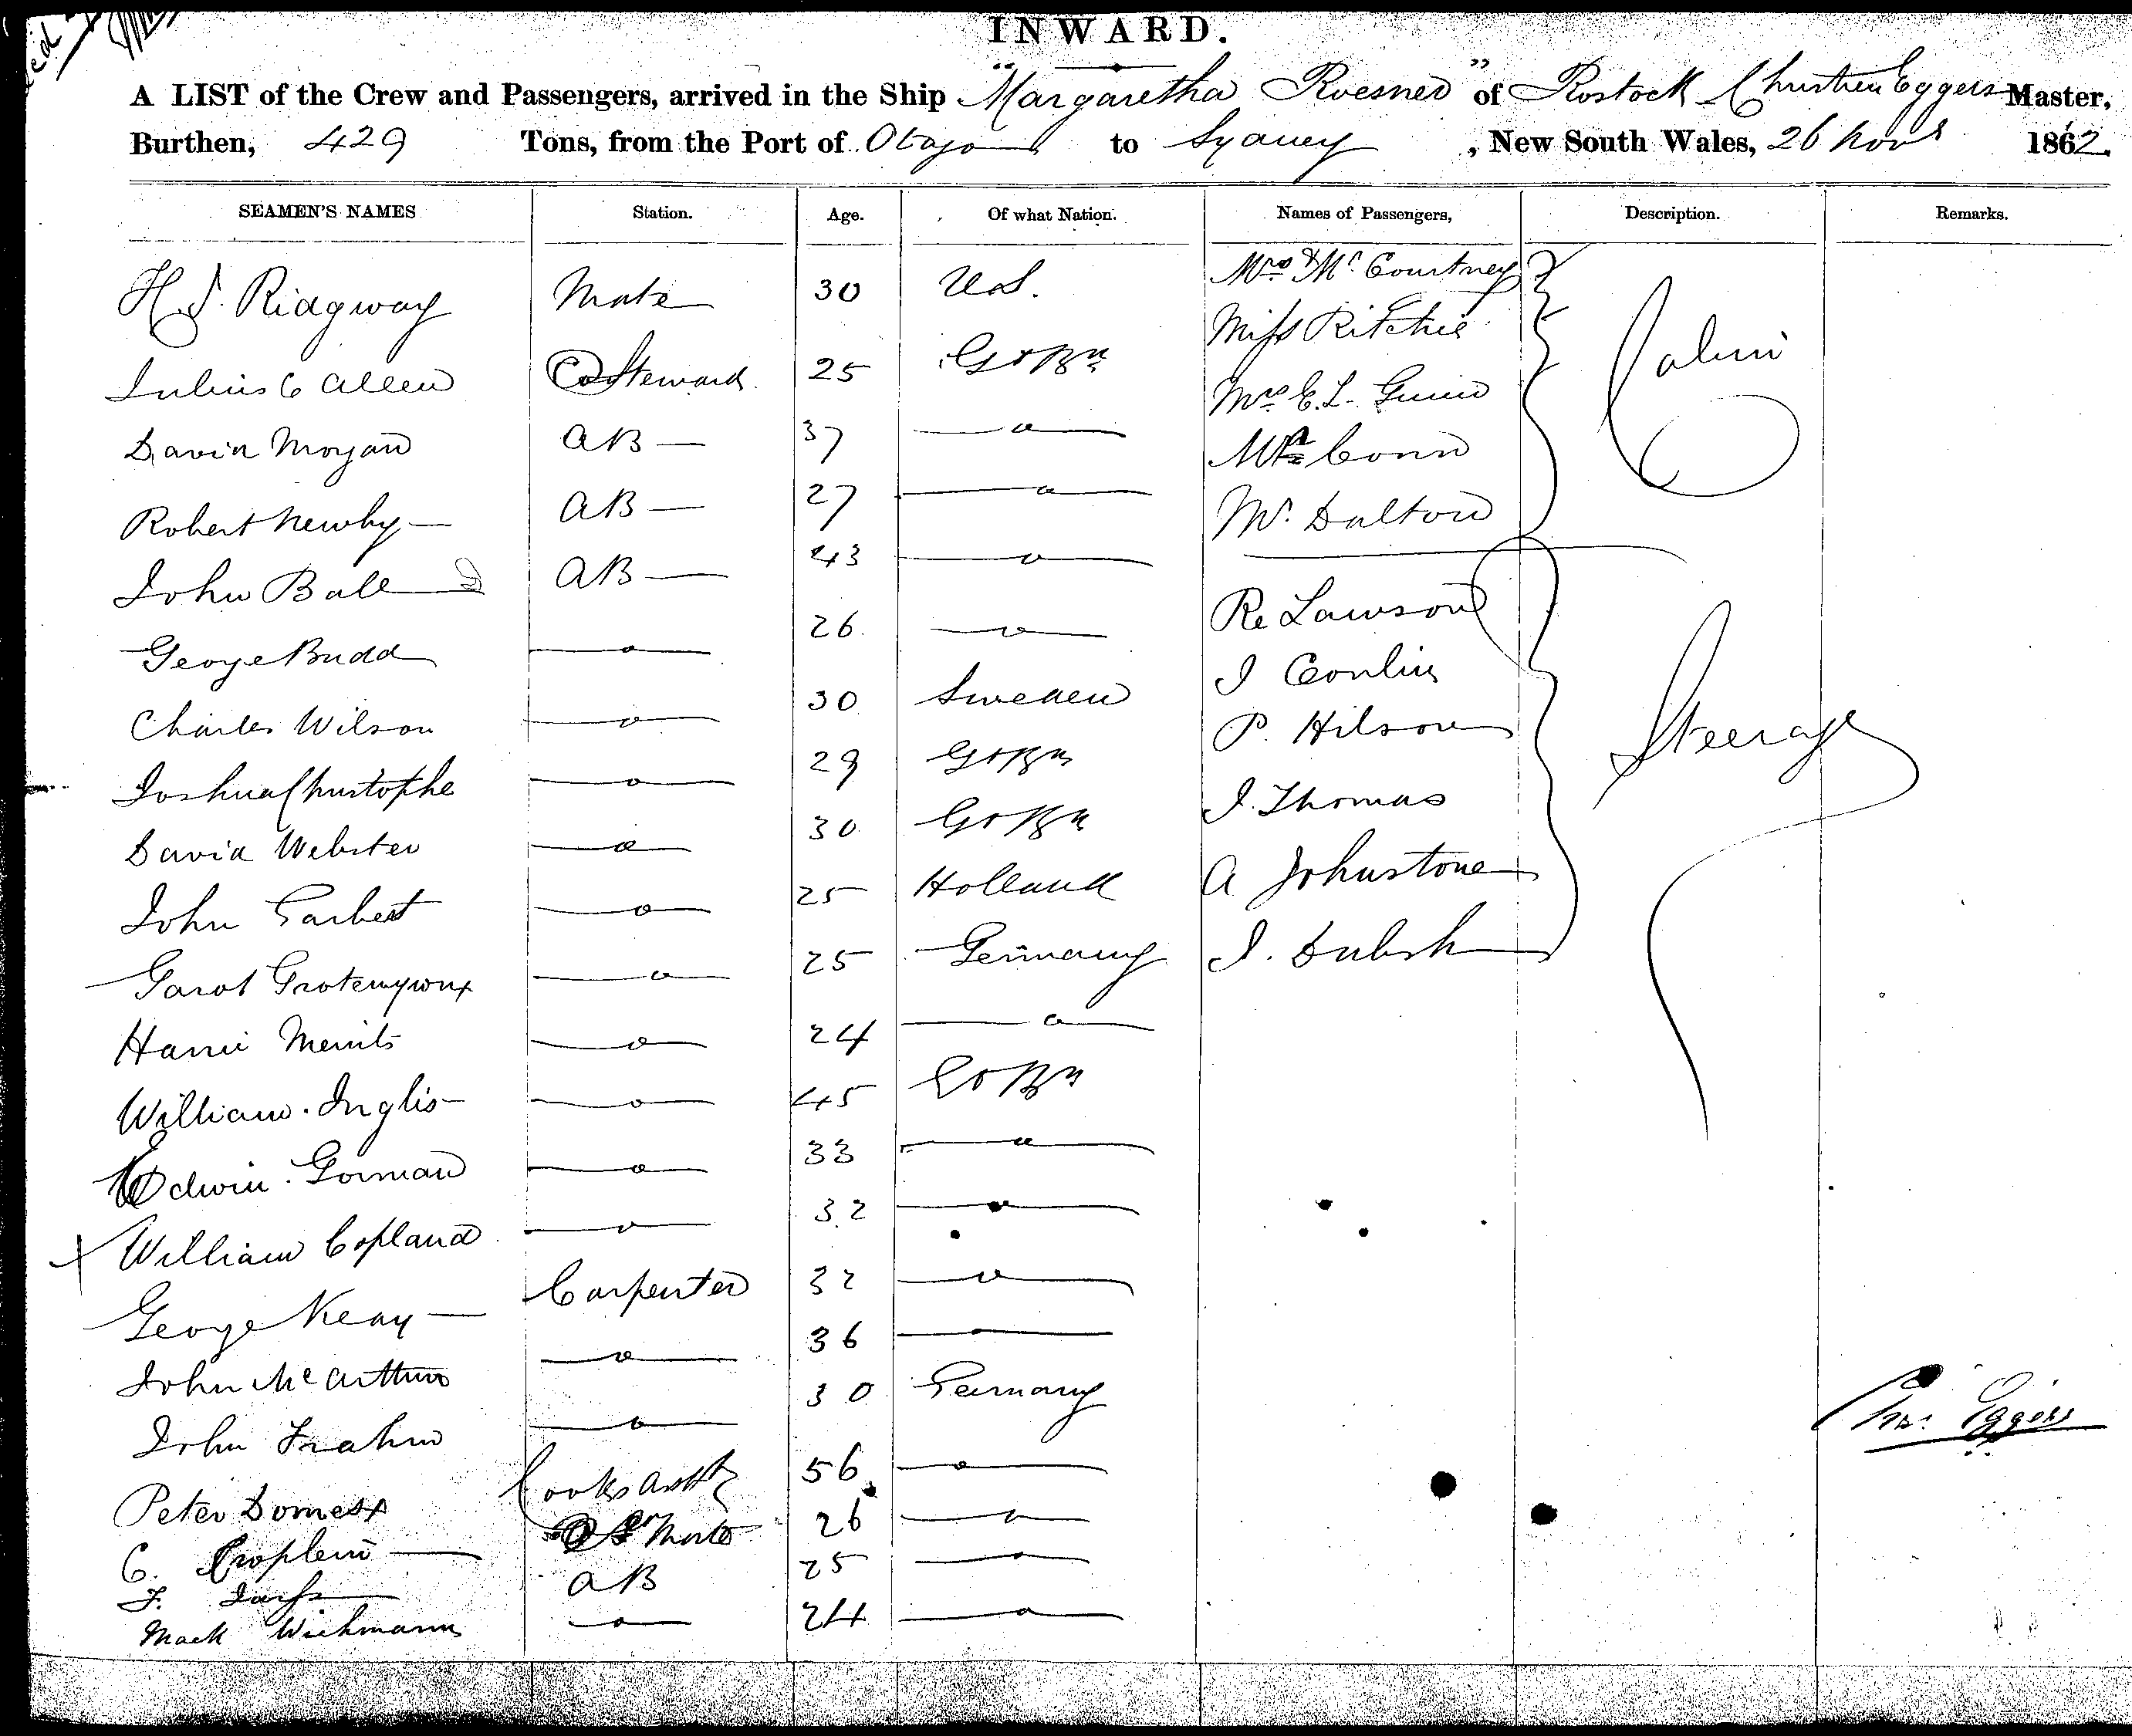 INWARD.
A LIST of the Crew and Passengers, arrived in the Ship "Margaretha Roesner" of Rostock Christien Eggers Master,
Burthen, 429 Tons, from the Port of Otago to Sydney, New South Wales, 26 Novr 1862.
SEAMEN'S NAMES Station. Age. Of what Nation. Names of Passengers, Description. Remarks.
H. J. Ridgway Mate 30 U.S. Mrs & Mr Courtney
Miss Ritchie
Julius C Allen Steward 25 Gt Bn Mrs E. L. Cabin
David Morgan AB — 37 — o — Conn
Robert Newby — AB — 27 — o — Mr. Dalton
John Ball AB — 43 — o —
George Budd — o — 26 — o — Re Lawson
Charles Wilson — o — 30 Sweden J Conlin Steerage
Joshua Christophe — o — 29 Gt Bn P. Hilson
David Webster — o — 30 Gt Bn J. Thomas
John Garbett — o — 25 Holland A Johnstone
Garot — o — 25 Germany J.
Harrie — o — 24 — o —
William Inglis — o — 45 Gt Bn
Edwin Gorman — o — 33 — o —
x William Copland — o — 32 — o —
George Keay — Carpenter 32 — o —
John McArthur — o — 36 —
John Frahm — o — 30 Germany
Peter Cooks Asstt 56 — o —
C. Mate 26 — o —
F. AB 25 — o —
Mack Wichmann — o — 24 — o —
Chr. Eggers